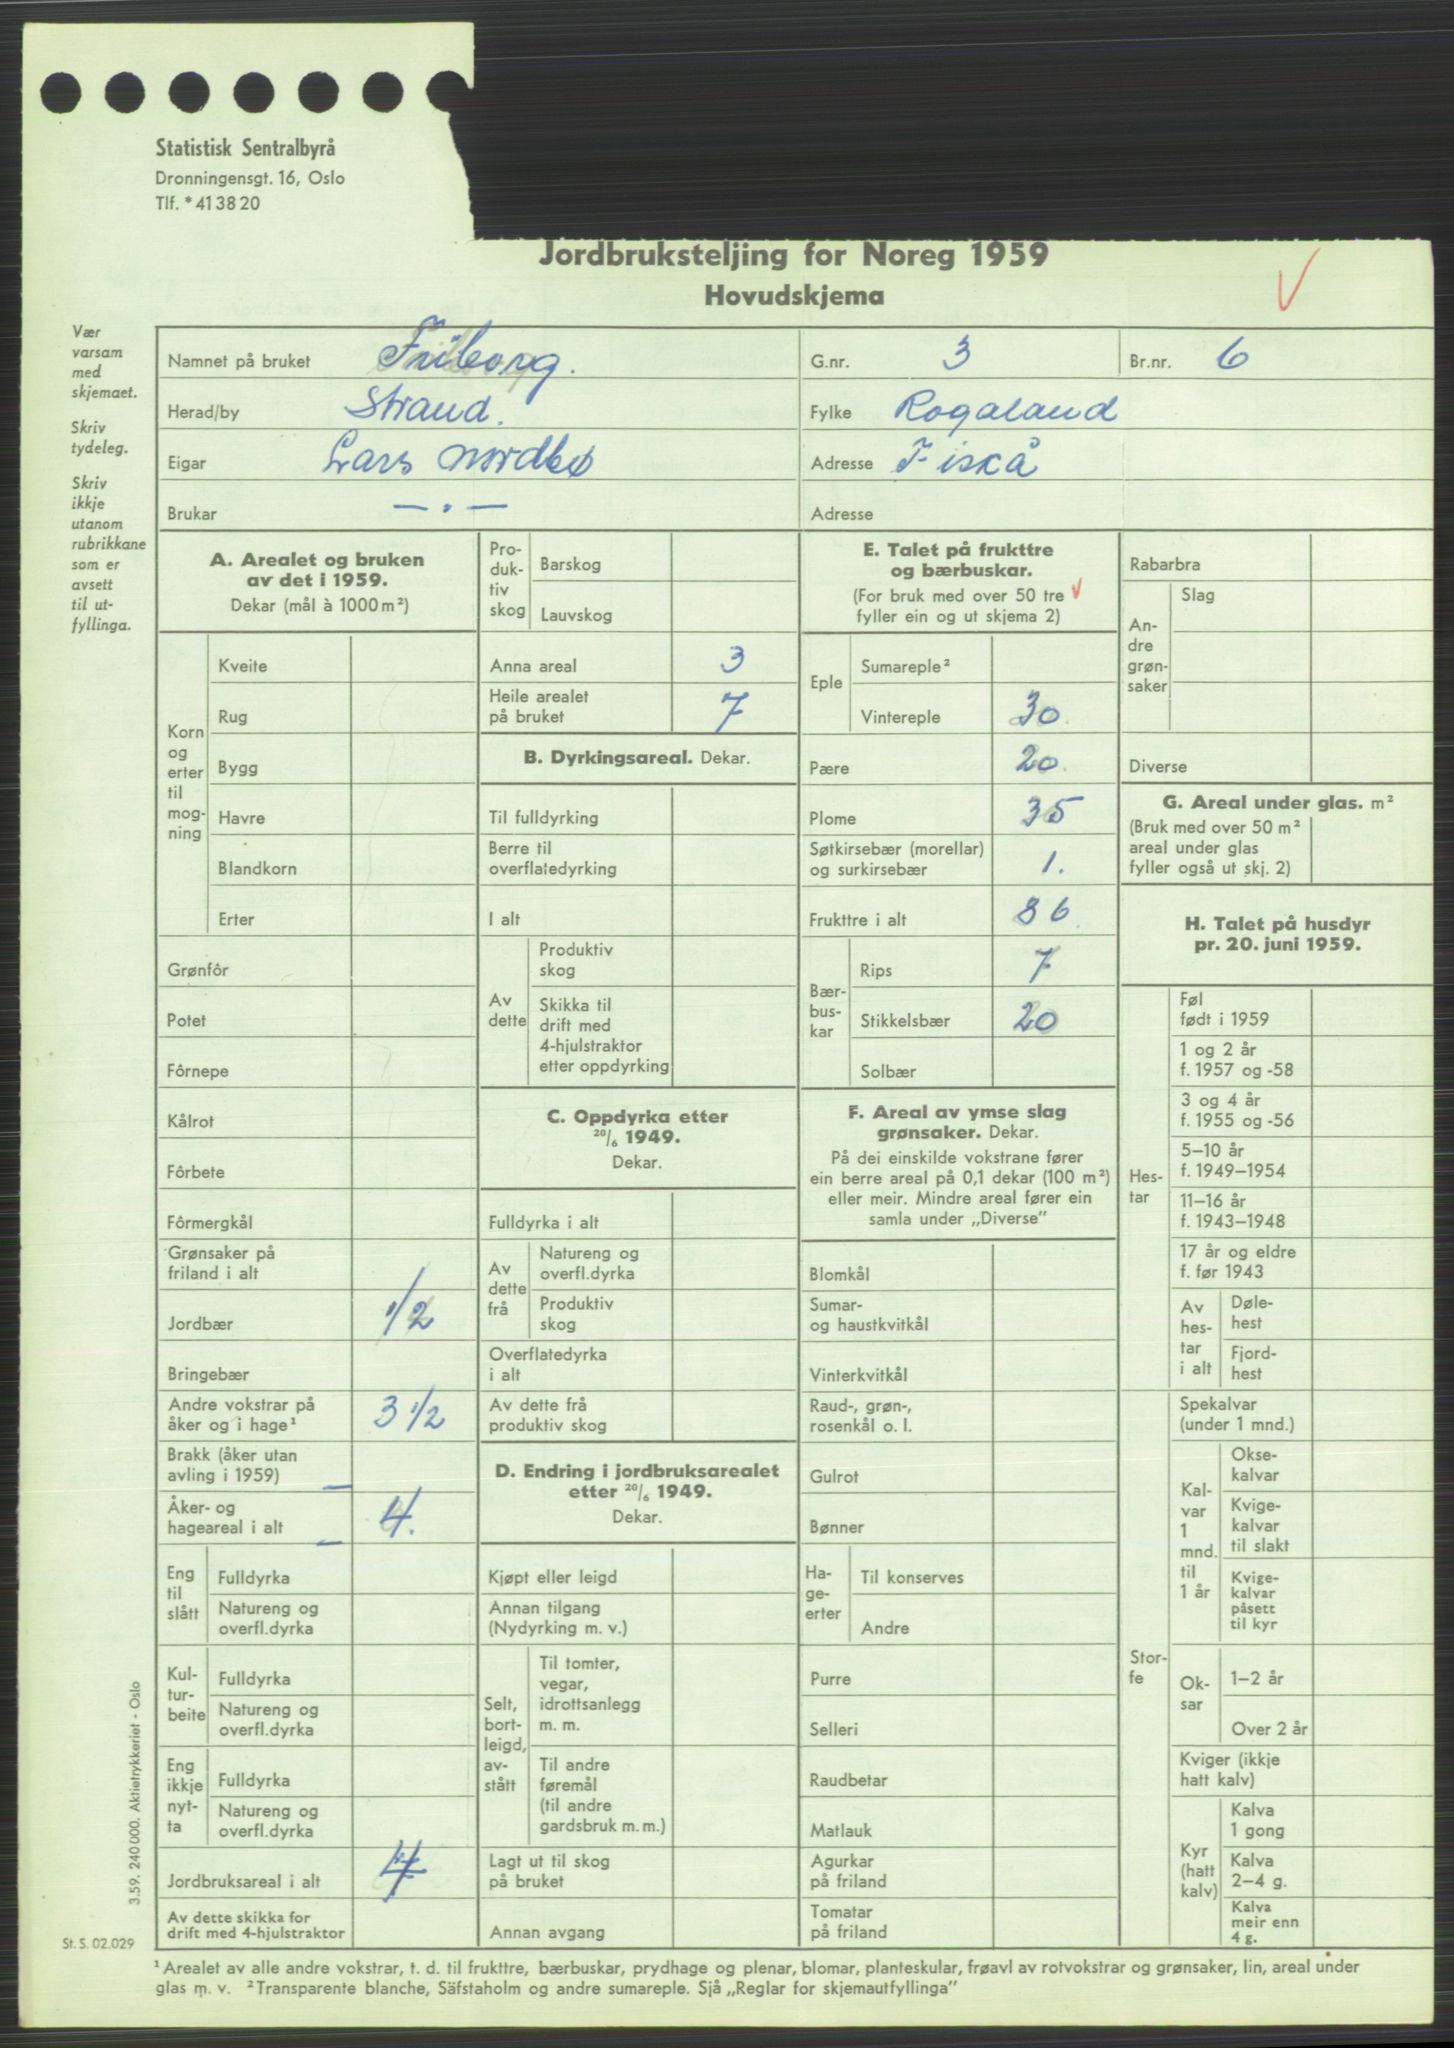 Statistisk Sentralbyrå
Dronningensgt. 16, Oslo
Tlf. * 41 38 20
Jordbruksteljing for Noreg 1959
Hovudskjema
Vær
varsam
med
skjemaet.
Skriv
tydeleg.
Skriv
ikkje
utanom
rubrikkane
som er
avsett
til ut-
fyllinga.
Namnet på bruket Friborg.
G.nr. 3
Br.nr. 6
Herad/by Strand.
Fylke Rogaland
Eigar Lars Nordbø
Adresse Fiskå
Brukar — . —
Adresse
A. Arealet og bruken
av det i 1959.
Dekar (mål à 1000 m²)
Korn
og
erter
til
mog-
ning
Kveite
Rug
Bygg
Havre
Blandkorn
Erter
Grønfôr
Potet
Fôrnepe
Kålrot
Fôrbete
Fôrmergkål
Grønsaker på
friland i alt
Jordbær 1/2
Bringebær
Andre vokstrar på
åker og i hage¹ 3 1/2
Brakk (åker utan
avling i 1959) —
Åker- og
hageareal i alt — 4.
Eng
til
slått
Fulldyrka
Natureng og
overfl.dyrka
Kul-
tur-
beite
Fulldyrka
Natureng og
overfl.dyrka
Eng
ikkje
nyt-
ta
Fulldyrka
Natureng og
overfl.dyrka
Jordbruksareal i alt 4
Av dette skikka for
drift med 4-hjulstraktor
Pro-
duk-
tiv
skog
Barskog
Lauvskog
Anna areal 3
Heile arealet
på bruket 7
B. Dyrkingsareal. Dekar.
Til fulldyrking
Berre til
overflatedyrking
I alt
Av
dette
Produktiv
skog
Skikka til
drift med
4-hjulstraktor
etter oppdyrking
C. Oppdyrka etter
20/6 1949.
Dekar.
Fulldyrka i alt
Av
dette
frå
Natureng og
overfl.dyrka
Produktiv
skog
Overflatedyrka
i alt
Av dette frå
produktiv skog
D. Endring i jordbruksarealet
etter 20/6 1949.
Dekar.
Kjøpt eller leigd
Annan tilgang
(Nydyrking m. v.)
Selt,
bort-
leigd,
av-
stått
Til tomter,
vegar,
idrottsanlegg
m. m.
Til andre
føremål
(til andre
gardsbruk m. m.)
Lagt ut til skog
på bruket
Annan avgang
E. Talet på frukttre
og bærbuskar.
(For bruk med over 50 tre
fyller ein og ut skjema 2)
Eple
Sumareple²
Vintereple 30
Pære 20
Plome 35
Søtkirsebær (morellar)
og surkirsebær 1.
Frukttre i alt 86
Bær-
bus-
kar
Rips 7
Stikkelsbær 20
Solbær
F. Areal av ymse slag
grønsaker. Dekar.
På dei einskilde vokstrane fører
ein berre areal på 0,1 dekar (100 m²)
eller meir. Mindre areal fører ein
samla under „Diverse”
Blomkål
Sumar-
og haustkvitkål
Vinterkvitkål
Raud-, grøn-,
rosenkål o. l.
Gulrot
Bønner
Ha-
ge-
erter
Til konserves
Andre
Purre
Selleri
Raudbetar
Matlauk
Agurkar
på friland
Tomatar
på friland
Rabarbra
An-
dre
grøn-
saker
Slag
Diverse
G. Areal under glas. m²
(Bruk med over 50 m²
areal under glas
fyller også ut skj. 2)
H. Talet på husdyr
pr. 20. juni 1959.
Hes-
tar
Føl
født i 1959
1 og 2 år
f. 1957 og -58
3 og 4 år
f. 1955 og -56
5–10 år
f. 1949–1954
11–16 år
f. 1943–1948
17 år og eldre
f. før 1943
Av
hes-
tar
i alt
Døle-
hest
Fjord-
hest
Stor-
fe
Spekalvar
(under 1 mnd.)
Kal-
var
1
mnd.
til
1 år
Okse-
kalvar
Kvige-
kalvar
til slakt
Kvige-
kalvar
påsett
til kyr
Ok-
sar
1–2 år
Over 2 år
Kviger (ikkje
hatt kalv)
Kyr
(hatt
kalv)
Kalva
1 gong
Kalva
2–4 g.
Kalva
meir enn
4 g.
3.59. 240 000. Aktietrykkeriet - Oslo
St. S. 02.029
¹ Arealet av alle andre vokstrar, t. d. til frukttre, bærbuskar, prydhage og plenar, blomar, planteskular, frøavl av rotvokstrar og grønsaker, lin, areal under
glas m. v. ² Transparente blanche, Säfstaholm og andre sumareple. Sjå „Reglar for skjemautfyllinga”